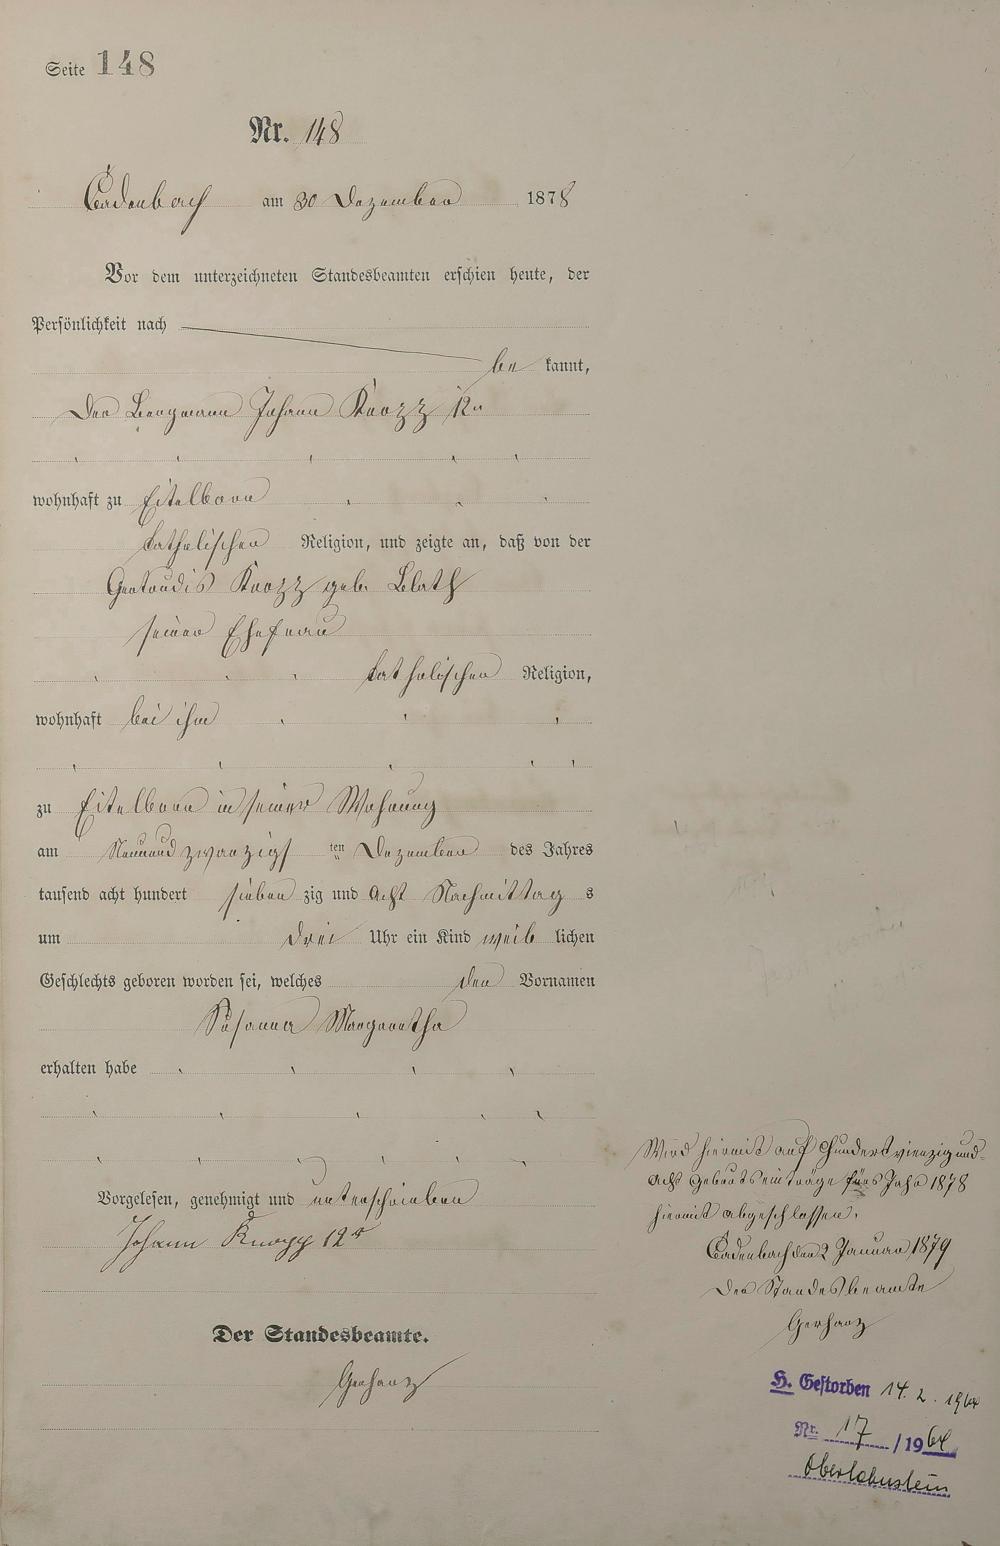 Seite 148
Nr. 148
Cadenbach am 30 Dezember 1878
Vor dem unterzeichneten Standesbeamten erschien heute, der
Persönlichkeit nach
be kannt,
Der Bergmann Johann Knopp 12r
wohnhaft zu Eitelborn
katholischer Religion, und zeigte an, daß von der
Gertrudis Knopp geb. Blath
seiner Ehefrau
katholischer Religion,
wohnhaft bei ihm
zu Eitelborn in seiner Wohnung
am Neunundzwanzigsten Dezember des Jahres
tausend acht hundert sieben zig und Acht Nachmittag s
um drei Uhr ein Kind weib lichen
Geschlechts geboren worden sei, welches den Vornamen
Susanna Margaretha
erhalten habe
Vorgelesen, genehmigt und unterschrieben
Johann Knopp 12r
Der Standesbeamte.
Gerharz
Wird hiermit auf Hundert vierzig und
Acht Geburtseinträge fürs Jahr 1878
hiermit abgeschlossen.
Cadenbach den 2 Januar 1879
Der Standesbeamte
Gerharz
H. Gestorben 14. 2. 1964
Nr. 17 / 1964
Oberlahnstein